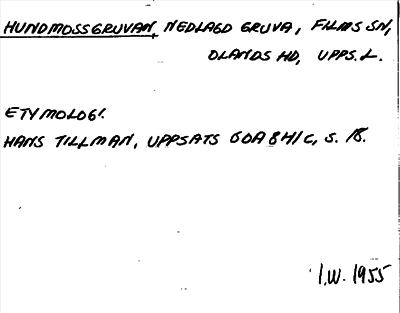 HUNDMOSSGRUVAN, NEDLAGD GRUVA, FILMS SN,
OLANDS HD, UPPS. L.
ETYMOLOGI.
HANS TILLMAN, UPPSATS GDA 8H/C, S. 18.
I.W. 1955